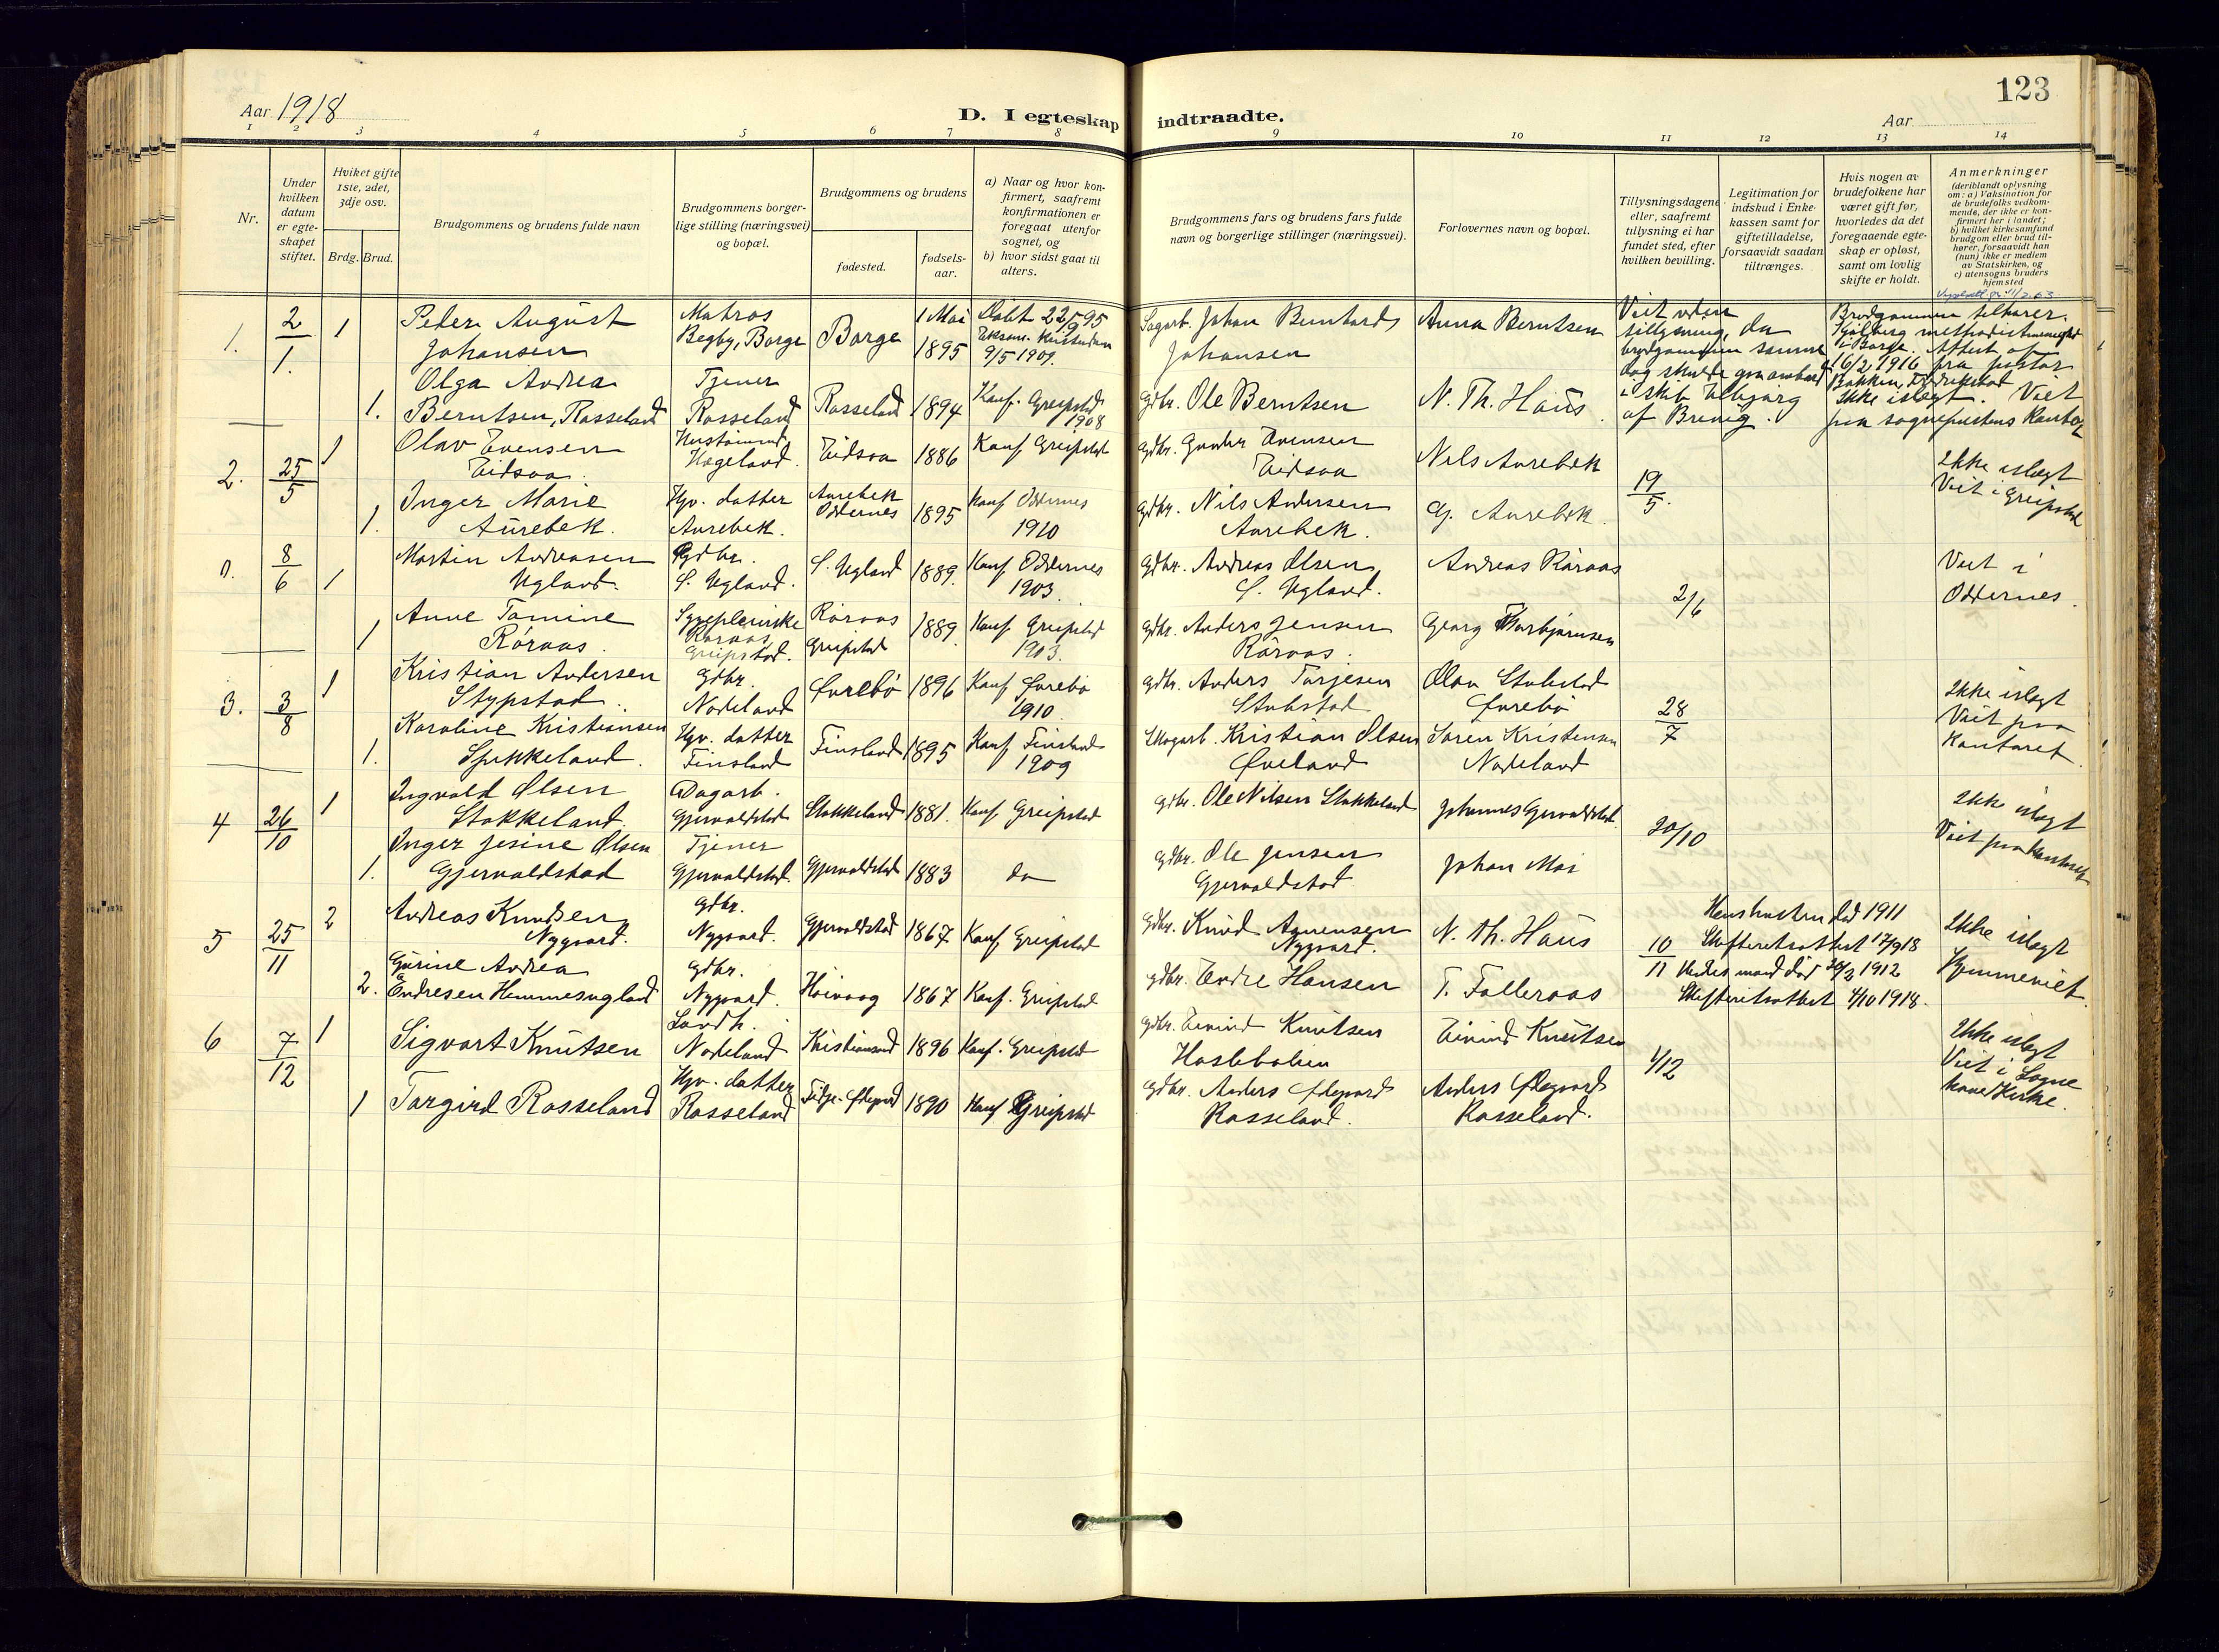 123
Aar 1918
D. I egteskap indtraadte.
Aar
1 2 3 4 5 6 7 8 9 10 11 12 13 14
Nr.
Under hvilken datum er egteskapet stiftet.
Hviket gifte 1ste, 2det, 3dje osv.
Brdg. Brud.
Brudgommens og brudens fulde navn
Brudgommens borgerlige stilling (næringsvei) og bopæl.
Brudgommens og brudens
fødested.
fødselsaar.
a) Naar og hvor konfirmert, saafremt konfirmationen er foregaat utenfor sognet, og
b) hvor sidst gaat til alters.
Brudgommens fars og brudens fars fulde navn og borgerlige stillinger (næringsvei).
Forlovernes navn og bopæl.
Tillysningsdagene eller, saafremt tillysning ei har fundet sted, efter hvilken bevilling.
Legitimation for indskud i Enkekassen samt for giftetilladelse, forsaavidt saadan tiltrænges.
Hvis nogen av brudefolkene har været gift før, hvorledes da det foregaaende egteskap er opløst, samt om lovlig skifte er holdt.
Anmerkninger
(deriblandt oplysning om: a) Vaksination for de brudefolks vedkommende, der ikke er konfirmert her i landet; b) hvilket kirkesamfund brudgom eller brud tilhører, forsaavidt han (hun) ikke er medlem av Statskirken, og c) utensogns bruders hjemsted
1. 2/1. 1 Peter August Johansen
Matros Begby, Borge
Borge
1 Mai 1895
Døbt 22/9 95
9/5 1909.
Sagarb. Johan Berntsard Johansen
Anna Berntsen
Viet uden tillysning, da brudgommen samme dag skulde gaa ombord i skib af Brevig.
Brudgommen tilhører methodistmenighed i Borge. Attest af 16/2 1916 fra pastor Bakken, Fredrikstad
Ikke islegt. Viet paa sogneprestens kontor
1. Olga Andrea Berntsen, Rosseland
Tjener Rosseland
Rosseland
1894
Konf. Greipstad 1908
Gdbr. Ole Berntsen
N. Th. Haus
2. 25/5 1 Olav Evensen Eidsaa
Hustømmerm. Hageland.
Eidsaa
1886
Konf Greipstad
Gdbr. Gunder Evensen Eidsaa
Nils Aurebek
19/5.
Ikke islegt
Viet i Greipstad
1. Inger Marie Aurebek.
Hjv. datter Aurebek.
Aurebek Oddernes
1895
Konf Oddernes 1910
Gdbr. Nils Andersen Aurebek.
G. Aurebek.
0. 8/6 1 Martin Andreasen Ugland.
Gdbr. S. Ugland.
S. Ugland
1889.
Konf Oddernes 1903.
Gdbr. Andreas Olsen, S. Ugland.
Andreas Røraas
2/6
Viet i Oddernes.
1 Anne Tomine Røraas.
Sygepleierske Røraas, Greipstad.
Røraas Greipstad
1889.
Konf Greipstad 1903.
Gdbr. Anders Jensen Røraas.
Georg Torbjørnsen
3. 3/8 1 Kristian Andersen Stypstad.
Gdbr. Nodeland
Øvrebø
1896
Konf Øvrebø 1910
Gdbr. Anders Torjesen Stubstad
Olav Stubstad Øvrebø
28/7
Ikke islegt
Viet paa Kontoret
1. Karoline Kristiansen
Hjv. datter Finsland
Finsland
1895
Konf Finsland 1909
Skogarb. Kristian Olsen Øveland
Søren Kristensen Nodeland
4 26/10 1 Ingvald Olsen Stokkeland.
Dagarb. Gjervoldstad
Stokkeland
1881.
Konf Greipstad
Gdbr. Ole Nilsen Stokkeland
Johannes Gjervoldstad.
20/10
Ikke islegt
Viet paa Kontoret
1. Inger Jesine Olsen Gjervoldstad
Tjener Gjervoldstad.
Gjervoldstad
1883
do
Gdbr. Ole Jensen Gjervoldstad
Johan Moi
5 25/11 2 Andreas Knudsen Nygaard.
Gdbr. Nygaard.
Gjervoldstad
1867
Konf Greipstad
Gdbr. Knud Nygaard.
N. Th. Haus
10/11
Hans hustru død 1911
Skifteretsattest 17/9 18
Ikke islegt
Hjemmeviet.
2. Gurine Andrea Endresen Hemmesugland
Gdbr. Nygaard.
Høivaag
1867
Konf. Greipstad
Gdbr. Endre Hansen
T. Falleraas
Hendes mand død 1912
Skifteretsattest 4/10 1918.
6 7/12 1 Sigvart Knutsen
Landh. Nodeland
Kristiansand
1896
Konf. Greipstad
Gdbr. Eivind Knutsen
Eivind Knutsen
1/12
Ikke islegt
Viet i Sogne Kirke.
1 Torgird Rosseland
Hjv. datter Rosseland
1890
Konf Greipstad
Gdbr. Anders Ødegaard Rosseland.
Anders Ødegaard Rosseland.